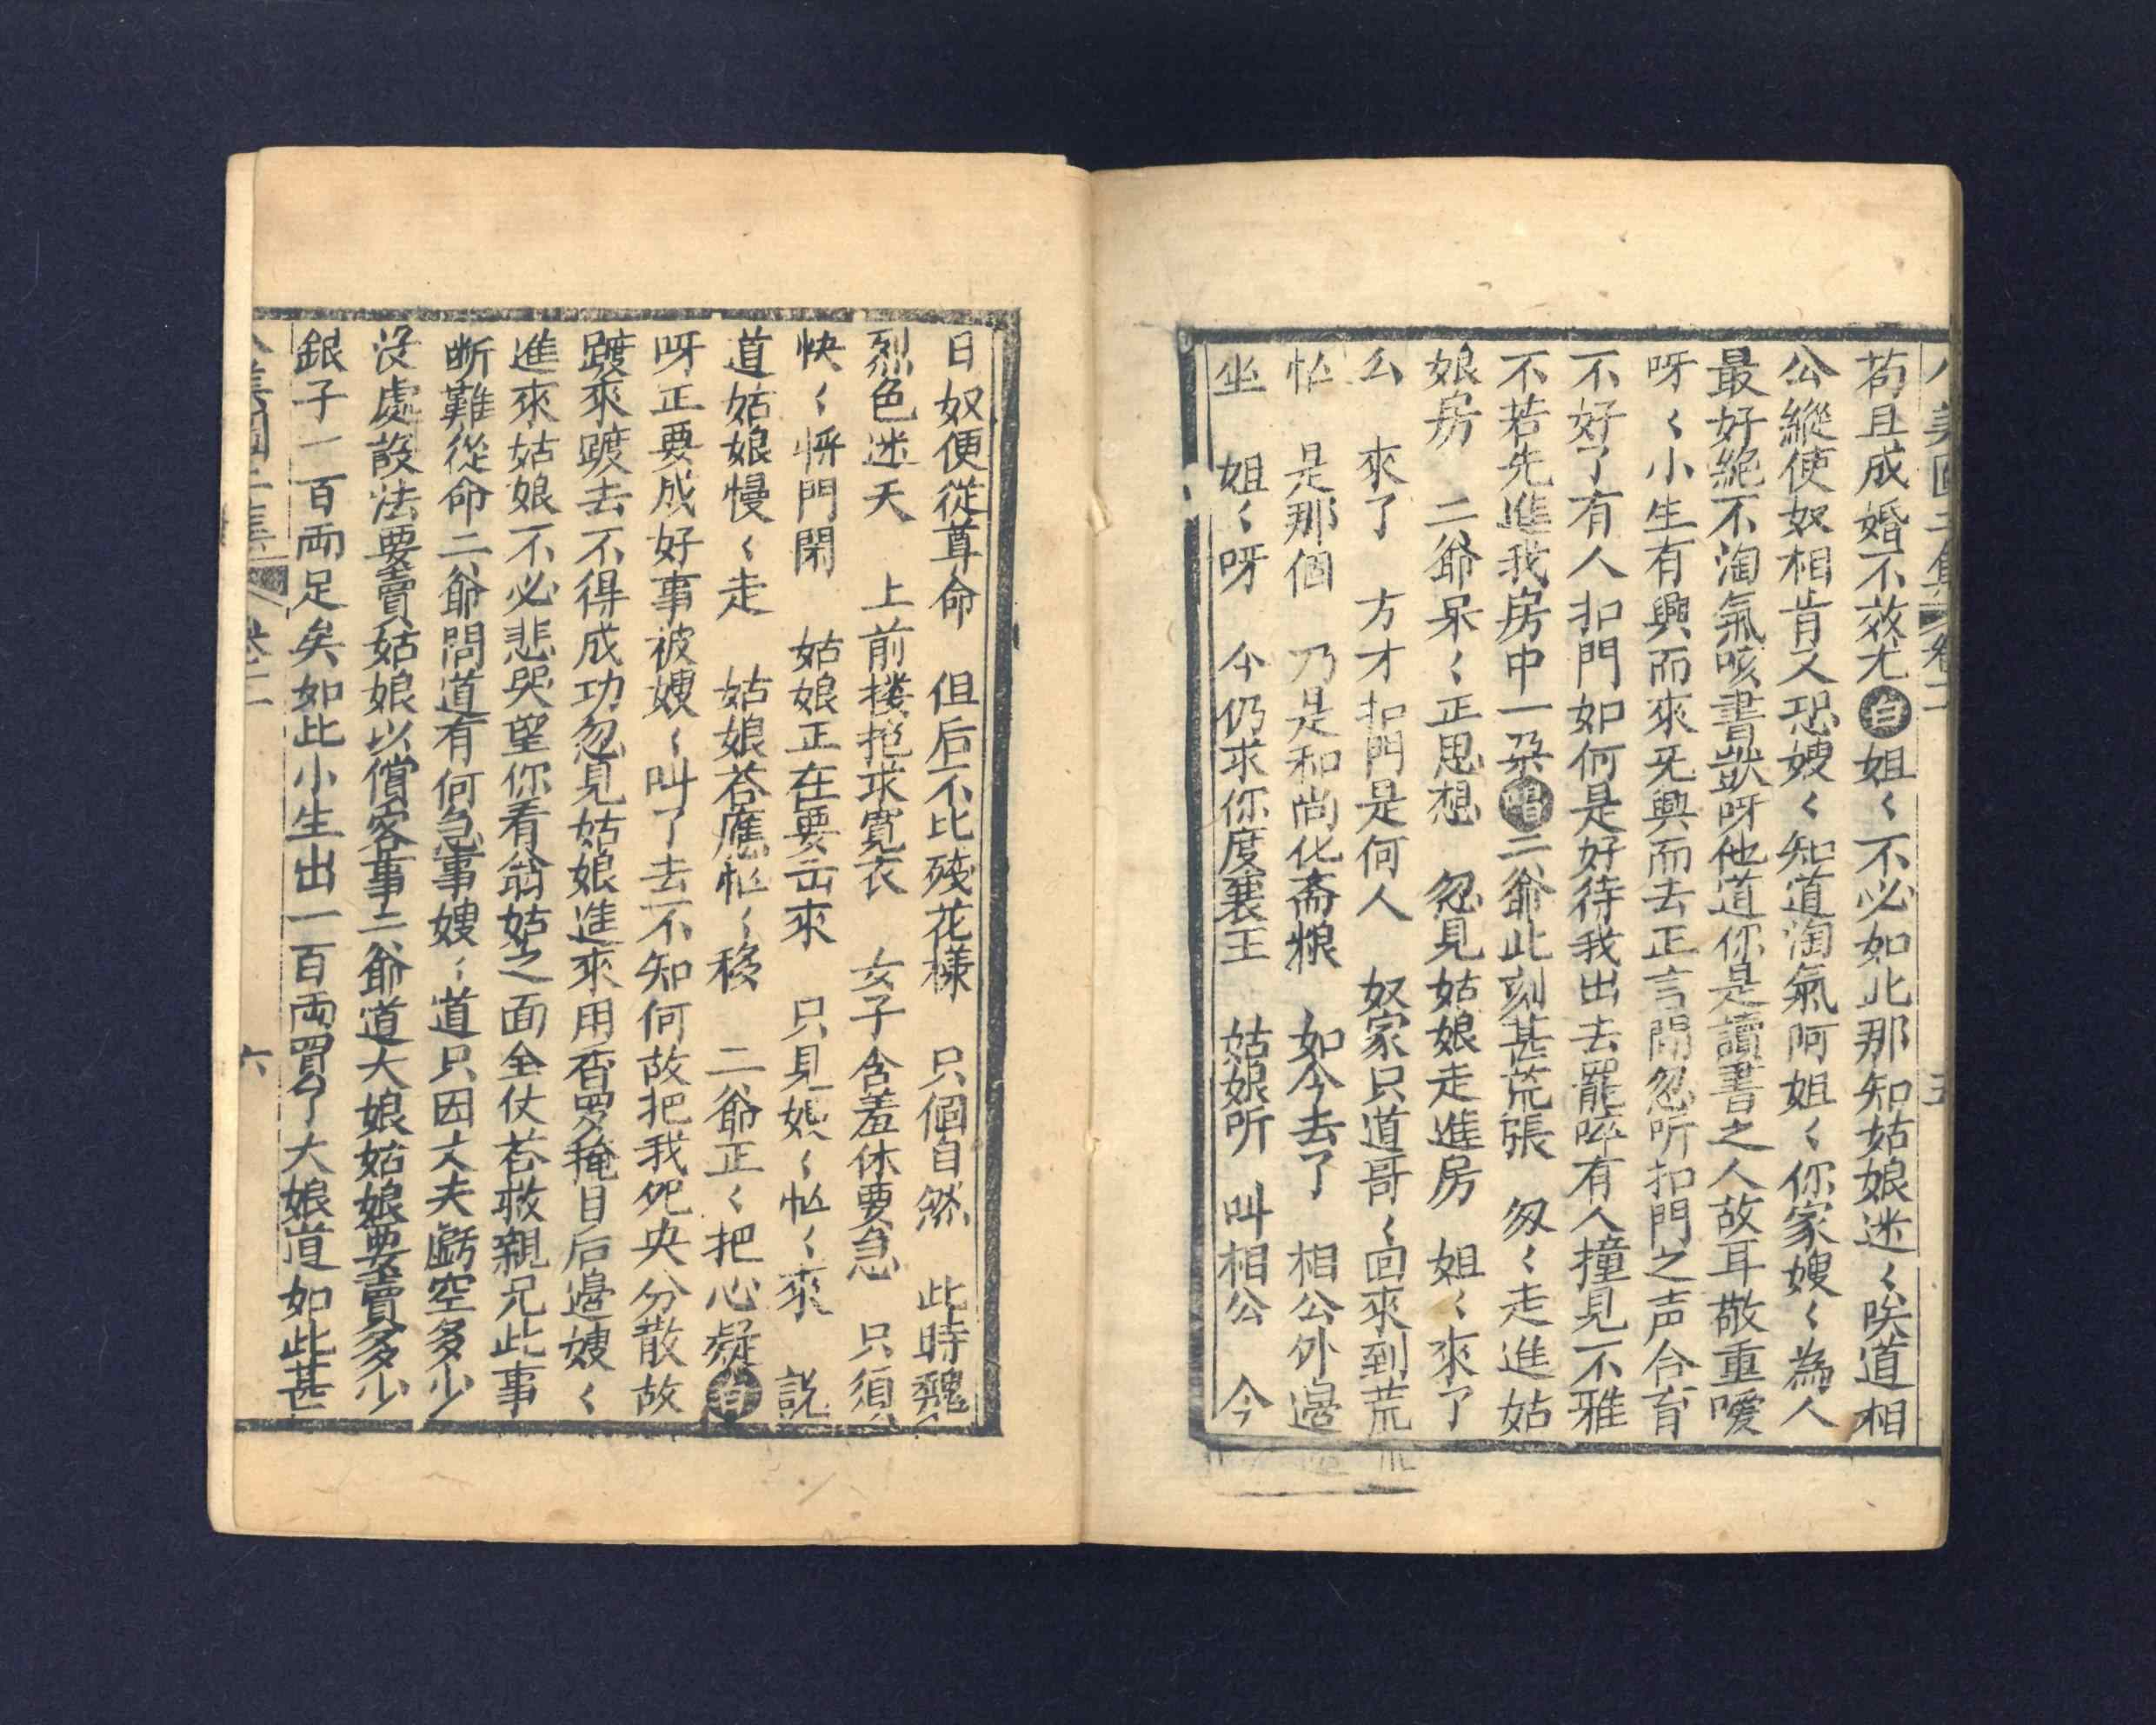 八美圖二集 卷二 五
苟且成婚不效尤白姐〻不必如此那知姑娘迷〻唉道相
公縱使奴相肯又恐嫂〻知道淘氣阿姐〻你家嫂〻為人
最好絕不淘氣咳書獃呀他道你是讀書之人故耳敬重嗳
呀〻小生有興而來旡興而去正言間忽听扣門之声合育
不好了有人扣門如何是好待我出去罷啐有人撞見不雅
不若先進我房中一朶唱二爺此刻甚荒張 匆〻走進姑
娘房 二爺呆〻正思想 忽見姑娘走進房 姐〻來了
么 來了 方才扣門是何人 奴家只道哥〻回來到荒
忙 是那個 乃是和尚化斋粮 如今去了 相公外邊
坐 姐〻呀 今仍求你度襄王 姑娘听 叫相公 今
日奴便從尊命 但后不比殘花樣 只個自然 此時魏
烈色迷天 上前摟抱求寬衣 女子含羞休要急 只須
快〻將門閉 姑娘正在要出來 只見嫂〻忙〻來 説
道姑娘慢〻走 姑娘荅應忙〻移 二爺正〻把心疑白
呀正要成好事被嫂〻叫了去不知何故把我兜央分散故
踱來踱去不得成功忽見姑娘進來用香罗掩目后邊嫂〻
進來姑娘不必悲哭望你看翁姑之面全仗荅救親兄此事
断難從命二爺問道有何急事嫂〻道只因丈夫虧空多少
没處設法要賣姑娘以償客事二爺道大娘姑娘要賣多少
銀子一百兩足矣如此小生出一百兩買了大娘道如此甚
八美圖二集 卷二 六